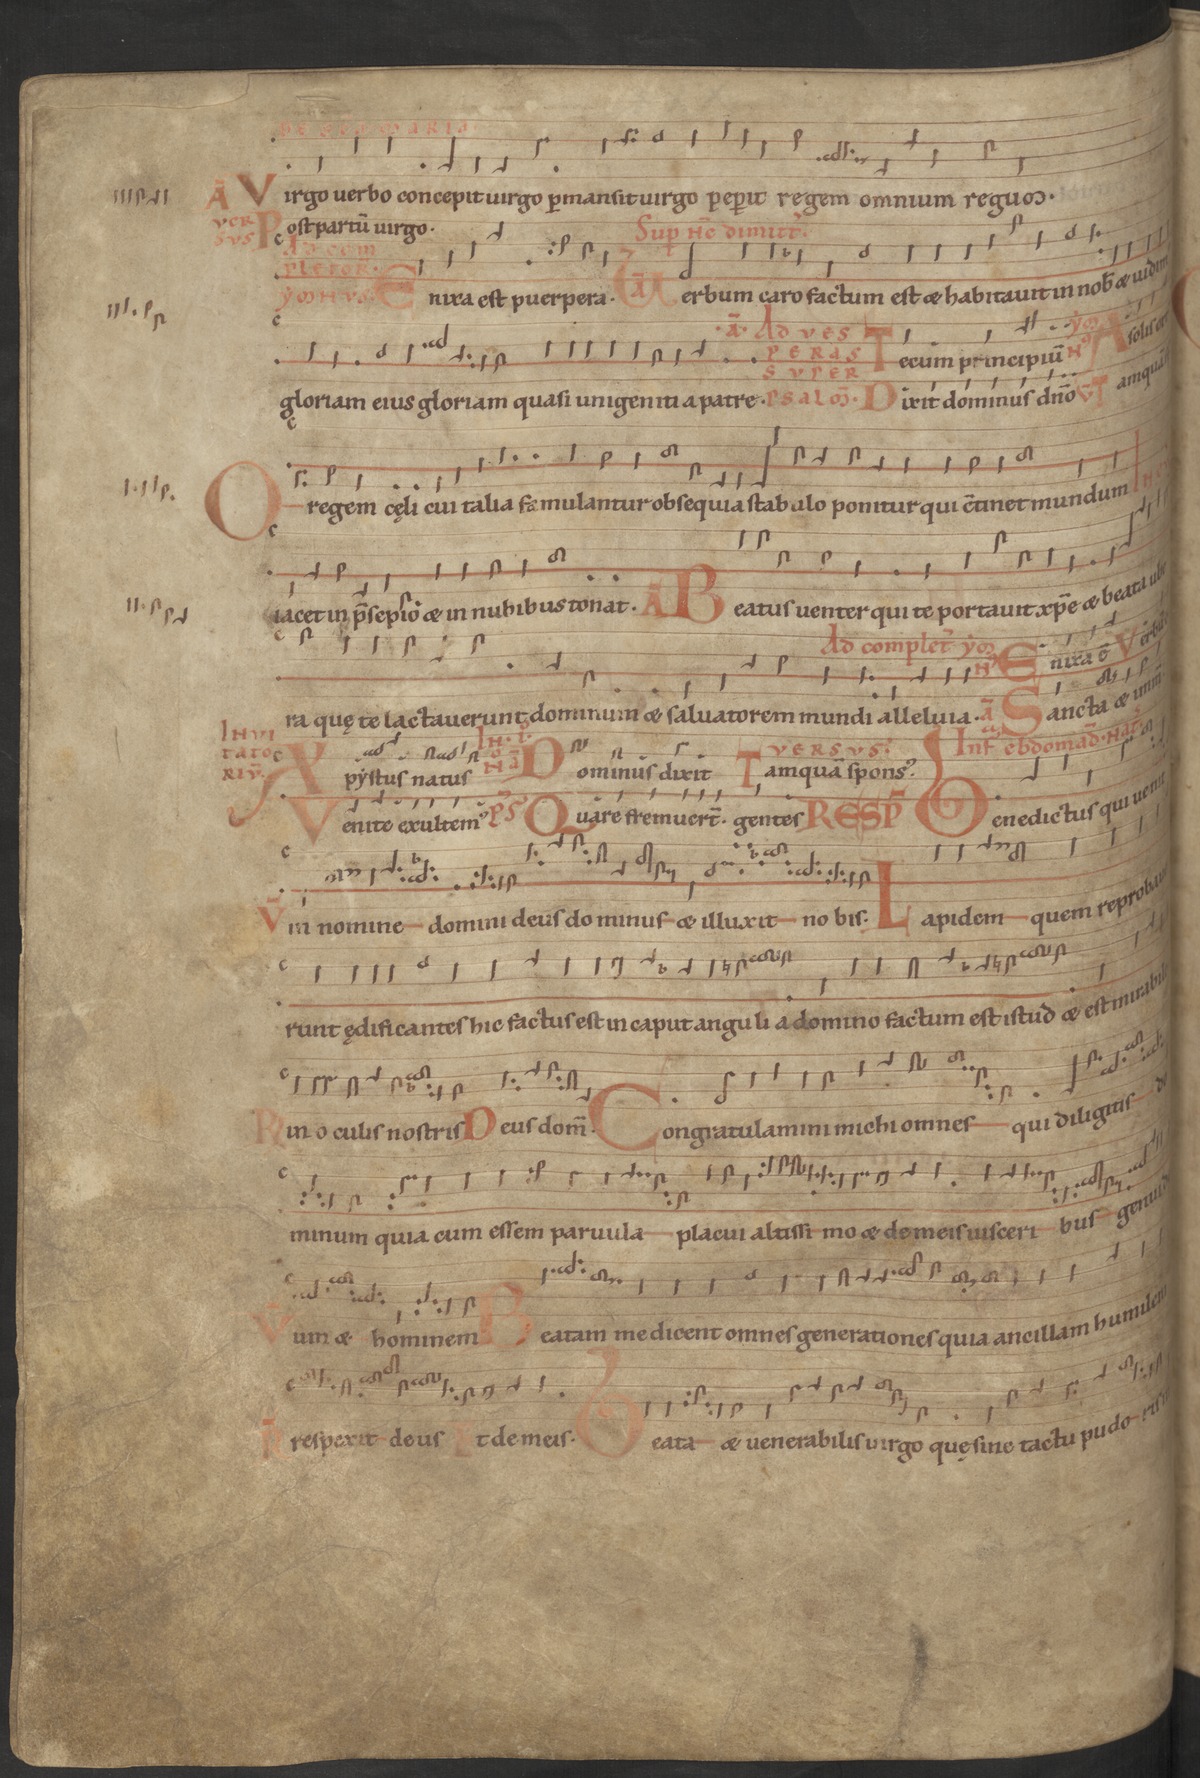 DE SCA MARIA.
Ā Virgo uerbo concepit uirgo p̄mansit uirgo peperit regem omnium regum.
VERSVS Post partū uirgo. Sup̄ Hc̄ dimitt̄.
Ad com
pletor.
ȳmnvs. Enixa est puerpera. Ā Verbum caro factum est æ habitauit in nob̄ æ uidim
Ā. Ad ves
peras Tecum principiū ȳm A solis or
super
gloriam eius gloriam quasi unigeniti a patre. psalm̄. Dixit dominus dn̄o V̄ Tamquā
O regem cęli cui talia famulantur obsequia stabulo ponitur qui c̄tinet mundum
iacet in p̄sepio æ in nubibus tonat. Ā Beatus uenter qui te portauit xp̄e æ beata ube
Ad complet̄ ȳm Enixa ē V Verbū
ra quę te lactauerunt dominum æ saluatorem mundi alleluia. ā Sancta æ imm̄
Invi
tato
riv̄. Xp̄ystus natus IN. I. Nā Dominus dixit VERSVS. Tamquā spons9 Inf̄ ebdomad̄. Nat̄
Venite exultem9 p̄s Quare fremuert̄. gentes RESP̄ Benedictus qui uenit
V̄ in nomine domini deus dominus æ illuxit nobis. Lapidem quem reproba
runt ędificantes hic factus est in caput anguli a domino factum est istud æ est mirabile
R in oculis nostris Deus dom̄. Congratulamini michi omnes qui diligitis do
minum quia cum essem paruula placui altissimo æ de meis uisceribus genui de
V̄ um æ hominem Beatam me dicent omnes generationes quia ancillam humilem
R̄ respexit deus Et de meis. Beata æ uenerabilis uirgo quę sine tactu pudoris